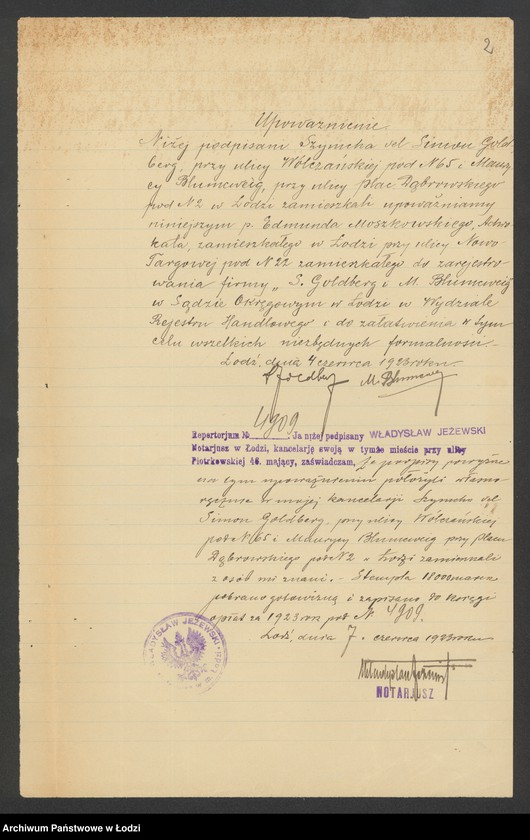 2
Upoważnienie.
Niżej podpisani Szymcha vel Simon Gold-
berg, przy ulicy Wólczańskiej pod N65 i Maury-
cy Blumcweig, przy ulicy plac Dąbrowskiego
pod N2 w Łodzi zamieszkali upoważniamy
niniejszym p. Edmunda Moszkowskiego, Adwo-
kata, zamieszkałego w Łodzi przy ulicy Nowo-
Targowej pod N22 zamieszkałego do zarejestro
wania firmy „S. Goldberg i M. Blumcweig
w Sądzie Okręgowym w Łodzi w Wydziale
Rejestru Handlowego i do załatwienia w tym
celu wszelkich niezbędnych formalności.
Łódź, dnia 4 czerwca 1923 roku.
S Goldberg M. Blumcweig
Repertorjum № 4909. Ja niżej podpisany WŁADYSŁAW JEŻEWSKI
Notarjusz w Łodzi, kancelarję swoją w tymże mieście przy ulicy
Piotrkowskiej 46. mający, zaświadczam, że podpisy powyższe
na tym upoważnieniu położyli własno-
ręcznie w mojej kancelarji Szymcha vel
Simon Goldberg przy ulicy Wólczańskiej
pod N65 i Maurycy Blumcweig przy placu
Dąbrowskiego pod N2 w Łodzi zamieszkali
z osób mi znani. – Stempla 18000 marek
pobrano gotowizną i zapisano do księgi
opłat za 1923 rok pod N 4909.
Łódź, dnia 7. czerwca 1923 roku
WŁADYSŁAW JEŻEWSKI
w m. Łodzi
Władysław Jeżewski
NOTARJUSZ
Archiwum Państwowe w Łodzi